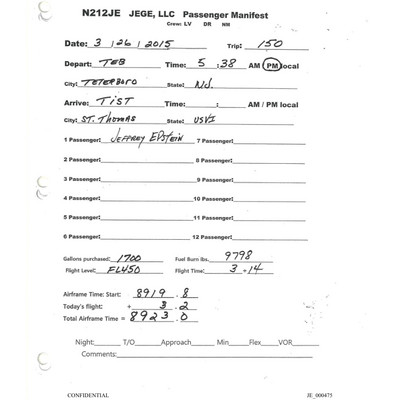 N212JE JEGE, LLC Passenger Manifest
Crew: LV DR NM
Date: 3 / 26 / 2015 Trip: 150
Depart: TEB Time: 5 : 38 AM PM local
City: TETERBORO State: NJ.
Arrive: TIST Time: : AM / PM local
City: ST. THOMAS State: USVI
1 Passenger: JEFFREY EPSTEIN 7 Passenger:
2 Passenger: 8 Passenger:
3 Passenger: 9 Passenger:
4 Passenger: 10 Passenger:
5 Passenger: 11 Passenger:
6 Passenger: 12 Passenger:
Gallons purchased: 1700 Fuel Burn lbs. 9798
Flight Level: FL450 Flight Time: 3 + 14
Airframe Time: Start: 8919 . 8
Today's flight: + 3 . 2
Total Airframe Time = 8923 . 0
Night: T/O Approach Min Flex VOR
Comments:
CONFIDENTIAL JE_000475